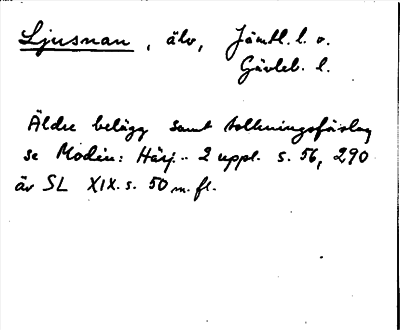 Ljusnan, älv, Jämtl. l. o.
Gävleb. l.
Äldre belägg samt tolkningsförslag
se Modin: Härj.. 2 uppl. s. 56, 290
äv SL XIX. s. 50 m. fl.